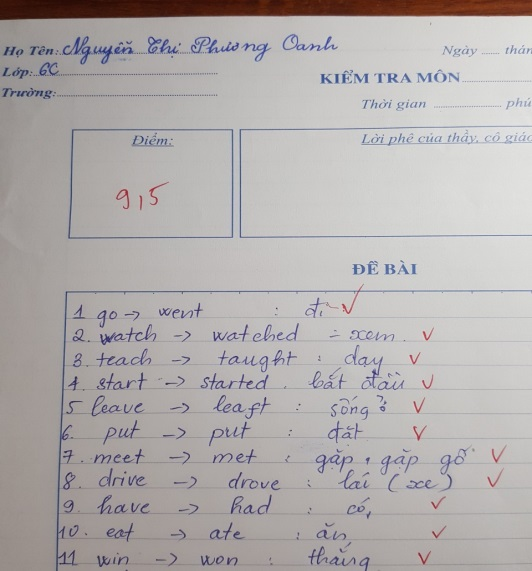 Họ Tên: Nguyễn Thị Phương Oanh
Ngày ...... thán
Lớp: 6C
KIỂM TRA MÔN
Trường:
Thời gian ............ phú
Điểm:
Lời phê của thầy, cô giáo
9,5
ĐỀ BÀI
1 go -> went : đi ✓
2. watch -> watched = xem. ✓
3. teach -> taught : dạy ✓
4. start -> started . bắt đầu ✓
5 leave -> leaft : sống ? ✓
6. put -> put : đặt ✓
7. meet -> met : gặp, gặp gỡ ✓
8. drive -> drove : lái (xe) ✓
9. have -> had : có, ✓
10. eat -> ate : ăn, ✓
11 win -> won : thắng ✓